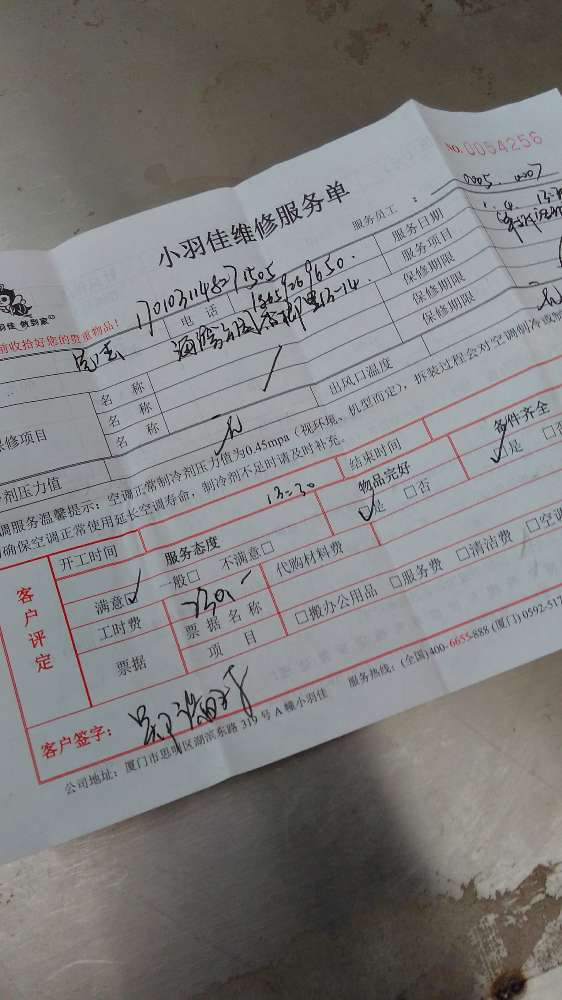 NO.0054256
小羽佳维修服务单
羽佳 做到家
前收拾好您的贵重物品!
服务员工: 0005. 0007
1701031148271505
电话 服务日期
服务项目
名称 保修期限
名称 保修期限
名称
保修项目
剂压力值 无 出风口温度 无
调服务温馨提示:空调正常制冷剂压力值为0.45mpa(视环境、机型而定),拆装过程会对空调制冷或制
确保空调正常使用延长空调寿命,制冷剂不足时请及时补充。
客户评定
开工时间 13:30 结束时间
服务态度 物品完好 备件齐全
满意☑ 一般□ 不满意□ ☑是 □否 ☑是 □否
工时费 代购材料费
票据 票据名称
项目 □搬办公用品 □服务费 □清洁费 □空调
客户签字:
公司地址:厦门市思明区湖滨东路319号A幢小羽佳 服务热线:(全国)400-6655-888 (厦门) 0592-517